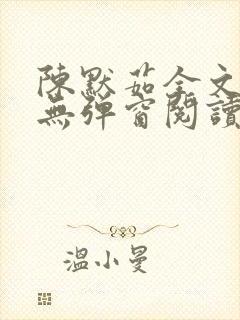 陳默茹全文
無彈窗閱讀
溫小曼